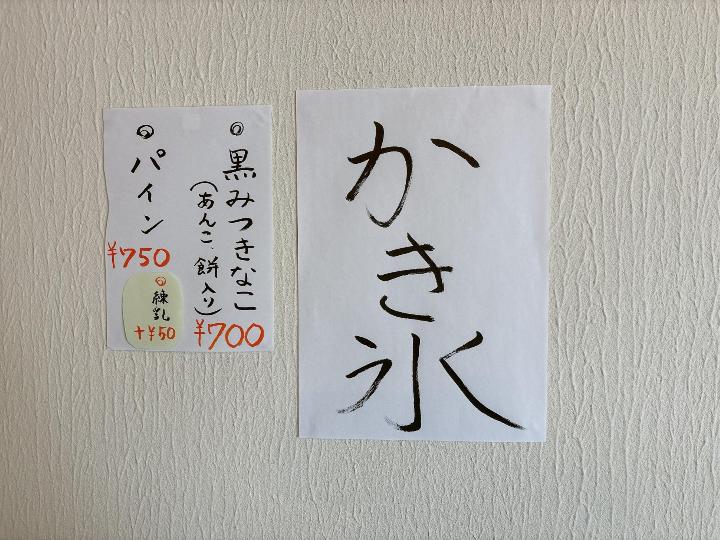 かき氷
◎黒みつきなこ
(あんこ、餅入り)
¥700
◎パイン
¥750
◎練乳
+¥50